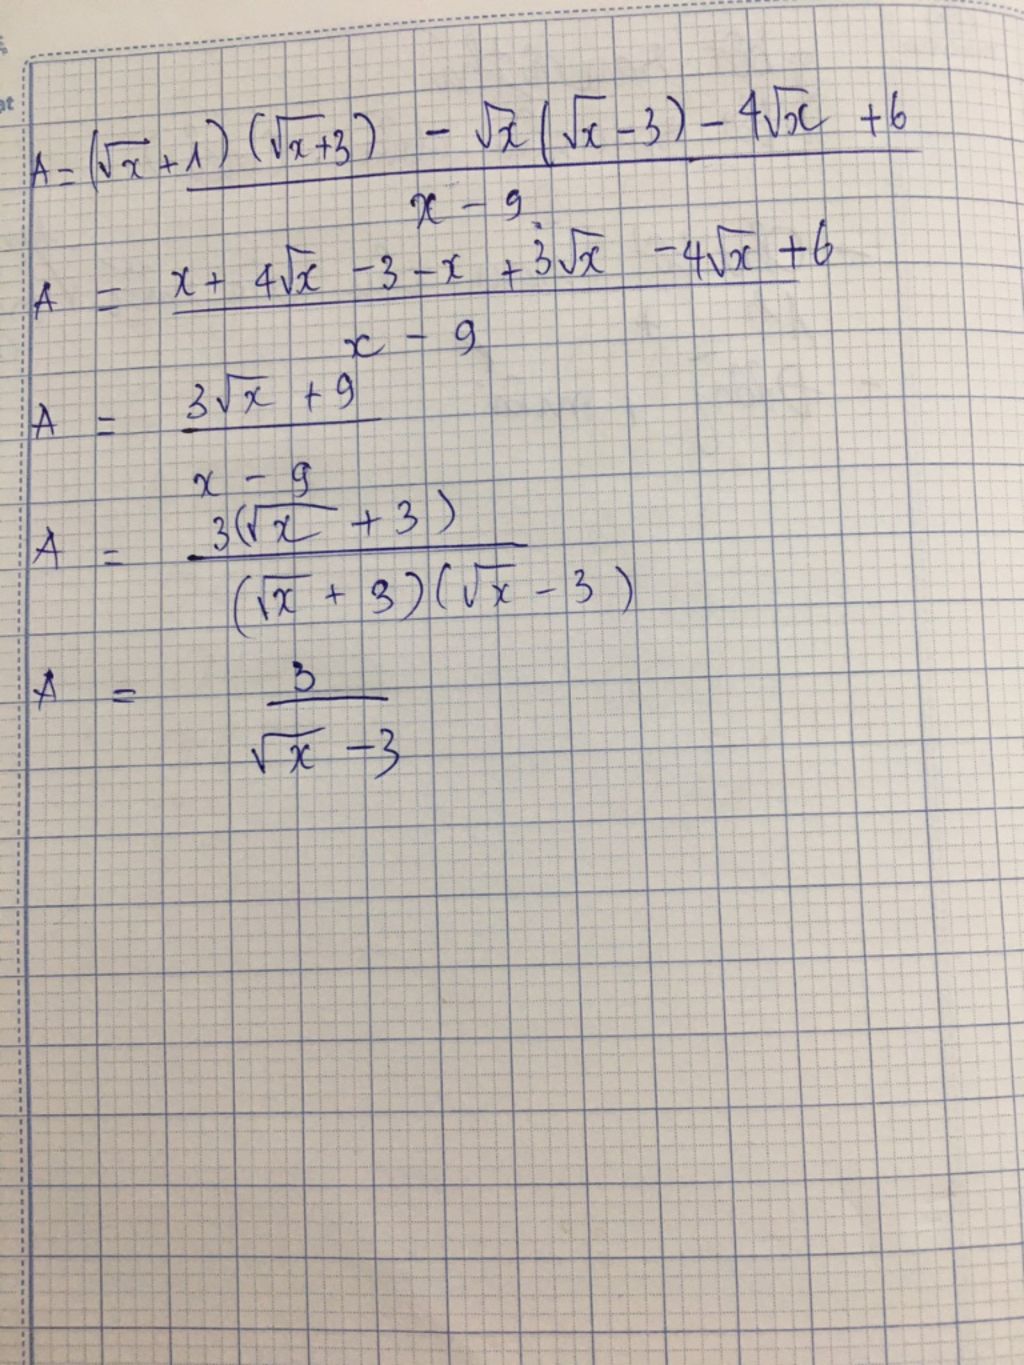 A = (√x + 1) (√x+3) - √x (√x - 3) - 4√x + 6
x - 9
A = x + 4√x - 3 - x + 3√x - 4√x + 6
x - 9
A = 3√x + 9
x - 9
A = 3(√x + 3)
(√x + 3)(√x - 3)
A = 3
√x - 3